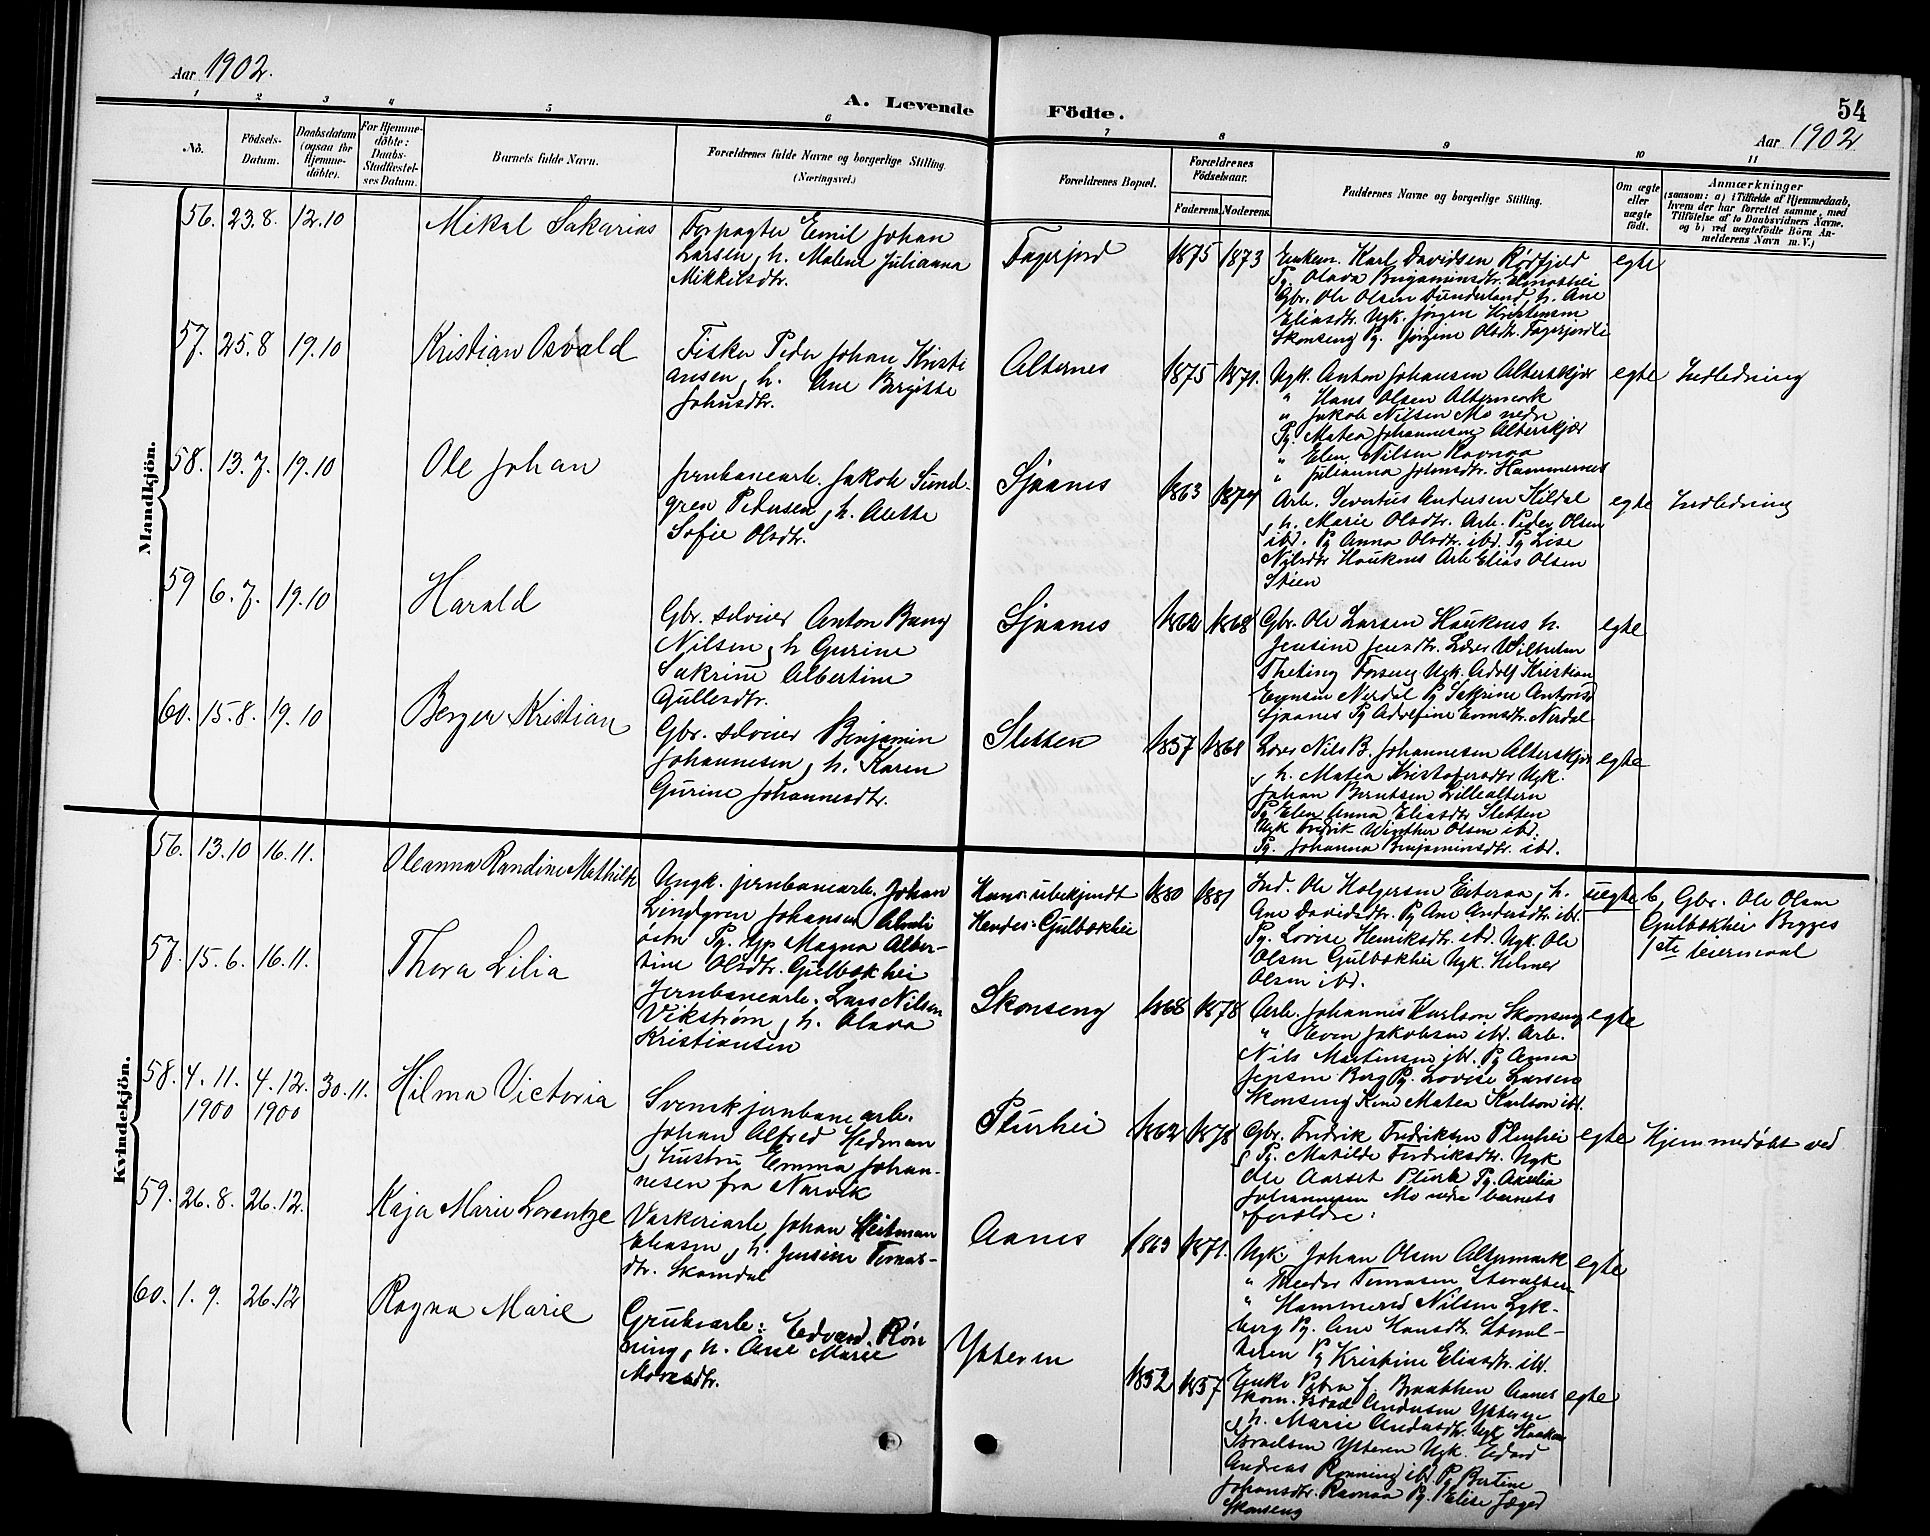 Aar 1902.
A. Levende Födte.
54
Aar 1902
1 2 3 4 5 6 7 8 9 10 11
No.
Födsels-
Datum.
Daabsdatum
(ogsaa for
Hjemme-
döbte).
For Hjemme-
döbte:
Daabs-
Stadfæstel-
ses Datum.
Barnets fulde Navn.
Forældrenes fulde Navne og borgerlige Stilling.
(Næringsvei.)
Forældrenes Bopæl.
Forældrenes
Födselsaar.
Faderens. Moderens.
Faddernes Navne og borgerlige Stilling.
Om ægte
eller
uægte
födt.
Anmærkninger
(saasom: a) i Tilfælde af Hjemmedaab,
hvem der har forrettet samme, med
Tilföielse af to Daabsvidners Navne.
og b) ved uægtefödte Börn An-
melderens Navn m. V.)
Mandkjön.
56. 23.8. 12.10
Mikal Sakarias
Forpagter Emil Johan
Larsen, h. Malene Julianna
Mikkelsdtr.
Fagerjord
1875 1873
Enkem. Karl Davidsen Rødfjeld
Pg. Olava Benjaminsdtr.
Gbr. Ole Olsen Dunderland, h. Ane
Eliasdtr. Ugk. Jørgen Kristensen
Skonseng Pg. Jørgine Olsdtr. Fagerjordli
egte
57. 25.8 19.10
Kristian Osvald
Fisker Peder Johan Kristi
ansen, h. Ane Birgitte
Johnsdtr.
Alternes
1875 1871.
Ugk. Anton Johansen Alterskjær
" Hans Olsen Altermark
" Jakob Nilsen Mo nedre
Pg. Matea Johannesen Alterskjær
" Elen Nilsen Ravnaa
" Julianna Johnsdtr. Hammernes
egte
Indledning
58. 13.7. 19.10
Ole Johan
Jernbanearb. Jakob Sund-
gren Pedersen, h. Anette
Sofie Olsdtr.
Sjaanes
1863 1874
Arb. Severtus Andersen Hildal
, h. Marie Olsdtr. Arb. Peder Olsen
ibd. Pg Anna Olsdtr. ibd. Pg Lise
Nilsdtr Haukenes Arb Elias Olsen
Stien
egte
Indledning
59 6.7. 19.10
Harald
Gbr. selveier Anton Bang
Nilsen, h Gurine
Sakrine Albertine
Gullesdtr.
Sjaanes
1862 1868
Gbr. Ole Larsen Haukenes h.
Jensine Jensdtr. Lærer Wilhelm
Theting Forseng Ugk. Adolf Kristian
Evensen Nerdal Pg Sakrine Antonisd
Sjaanes Pg Adolfine Evensdtr. Nerdal
egte
60. 15.8. 19.10
Berger Kristian
Gbr. selveier Benjamin
Johannesen, h. Karen
Gurine Johannesdtr.
Sletten
1857 1861
Lærer Nils B. Johannesen Alterskjær
, h. Matea Kristofersdtr Ugk.
Johan Berntsen Lillealtern
Pg Elen Anna Eliasdtr Sletten
Ugk Fredrik Winther Olsen ibd.
Pg. Johanna Benjaminsdtr. ibd.
egte
Kvindekjön.
56. 13.10 16.11.
Oleanna Randine Mathilde
Ungk. jernbanearb. Johan
Lindgren Johansen
Pg. Magna Alber-
tine Olsdtr. Gulbakhei
Hans: ubekjendt
Hendes: Gulbakhei
1880 1881
Ind. Ole Holgersen Eiteraa, h.
Ane Davidsdtr. Pg Ane Andersdtr. ibd.
Pg. Lovise Henriksdtr. ibd. Ugk. Ole
Olsen Gulbakhei Ugk. Hilmer
Olsen ibd.
uegte
b, Gbr. Ole Olsen
Gulbakhei Begges
1ste leiermaal
57. 15.6. 16.11.
Thora Lilia
Jernbanearb. Lars Nilsen
Vikstrøm, h. Olava
Kristiansen
Skonseng
1868 1878
Arb. Johannes Karlson Skonseng
" Even Jakobsen ibd. Arb.
Nils Martinsen ibd. Pg Annea
Jensen Berg Pg. Lovise Larsen
Skonseng Kone Matea Karlson ibd.
egte
58. 4.11. 4.12. 30.11.
1900 1900
Hilma Victoria
Svensk jernbanearb.
Johan Alfred Hedman
, hustru Emma Johan-
nesen fra Narvik
Plurhei
1862 1878
Gbr. Fredrik Fredriksen Plurhei
, Pg. Matilde Fredriksdtr. Ugk
Ole Aarset Plurh Pg. Amalia
Johannesen Mo nedre barnets
forældre:
egte
Hjemmedøbt ved
59. 26.8. 26.12.
Kaja Marie Lorentze
Varkeriarb Johan Heitman
Eliasen, h. Jensine Tomas-
dtr. Skamdal
Aanes
1863 1871.
Ugk. Johan Olsen Altermark
" Theodor Tomasen Storaltern
" Hammered Nilsen Lyk-
berg Pg. Ane Hansdtr. Storal-
teren Pg Kristine Eliasdtr. ibd.
egte
60. 1.9. 26.12
Ragna Marie
Grubearb: Edvard Røn
ning, h. Ane Marie
Mortsdtr.
Ytteren
1852 1857
Enke Petra f. Braathen Aanes
Skom. Israel Andersen Ytteren
, h. Marie Andersdtr. Ugk Haakon
Israelsen Ytteren Ugk. Edvard
Andreas Rønning ibd Pg Bertine
Johansdtr. Ravnaa Pg. Elise Jæger
Skonseng
egte